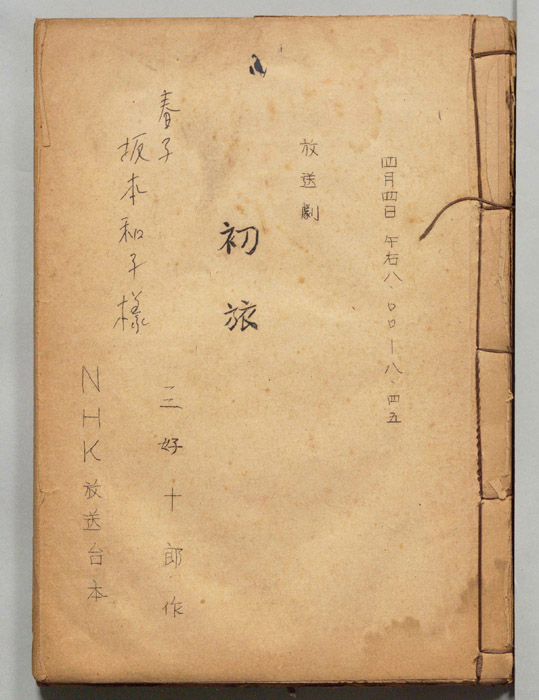 四月四日 午右八.〇〇—八.四五
放送劇
初旅
三好十郎作
春子
坂本和子様
NHK放送台本